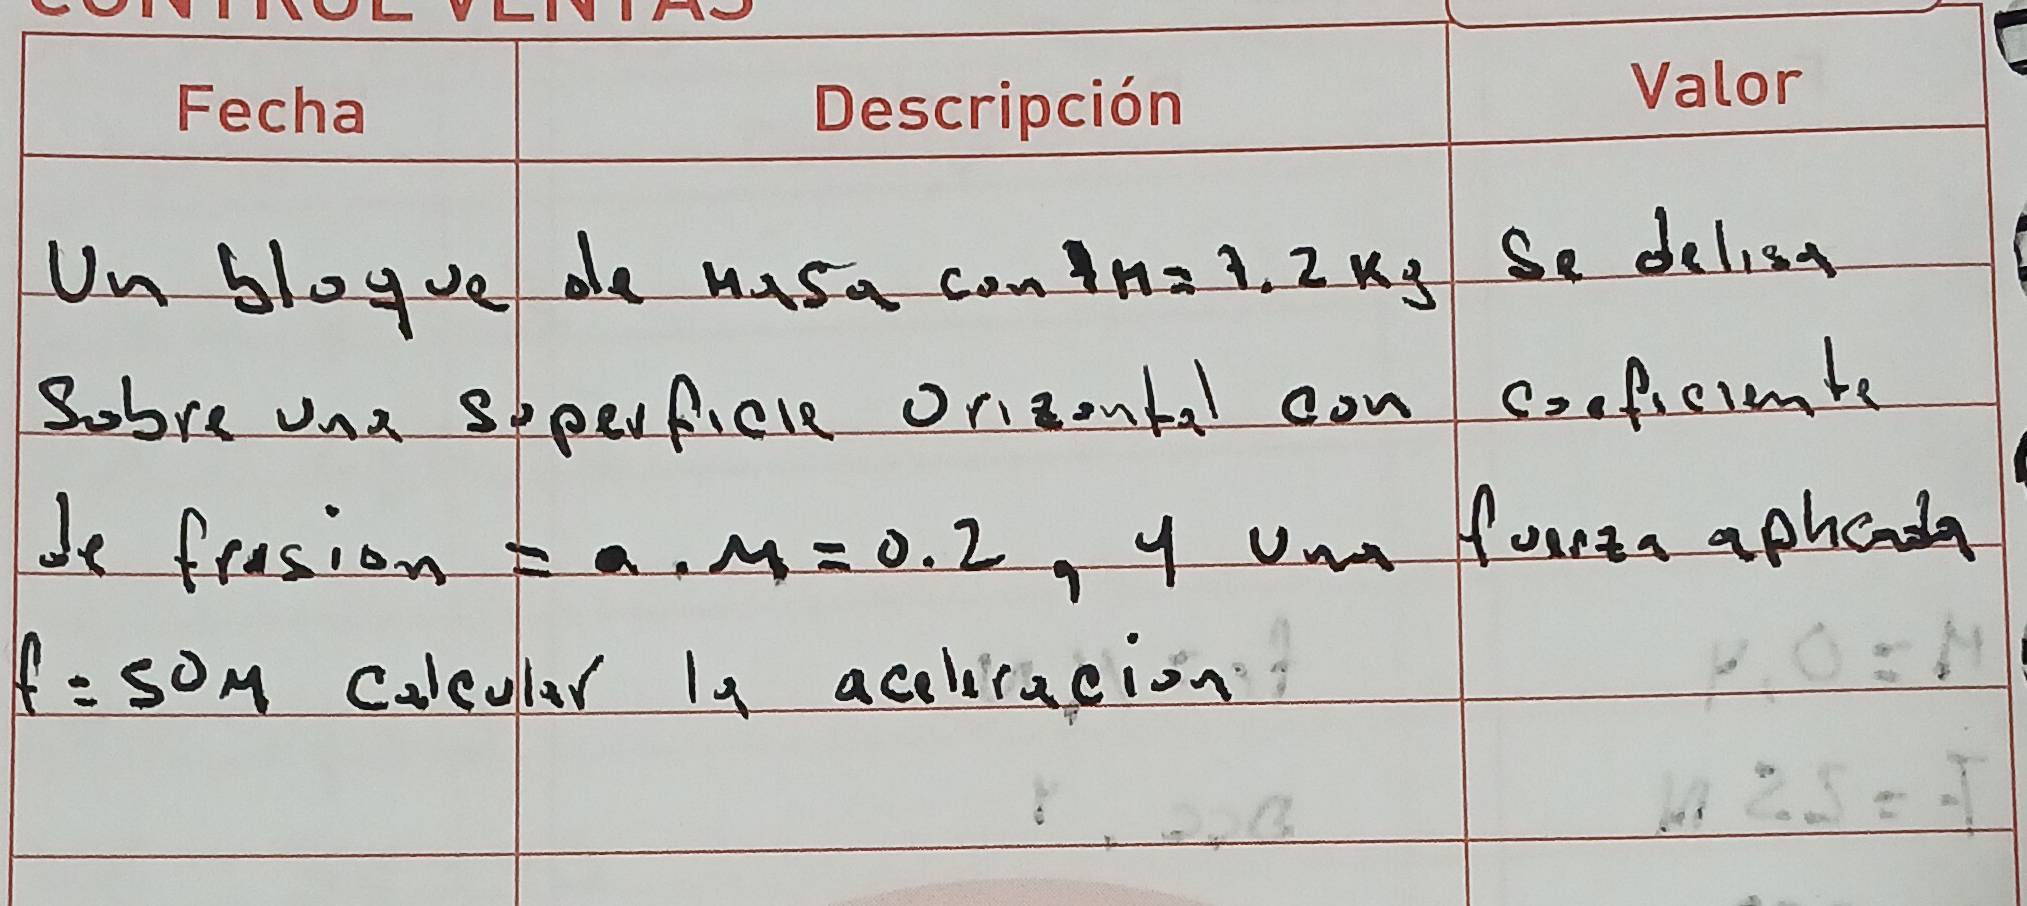 CONTROL VENTAS
Fecha Descripción Valor
Un bloque de masa con M=7.2 Kg Se delisa
Sobre una superficie Orizontal con coeficiente
de frasion = a. M=0.2, y una fuerza aplicada
f=50M Calcular la aceleracion